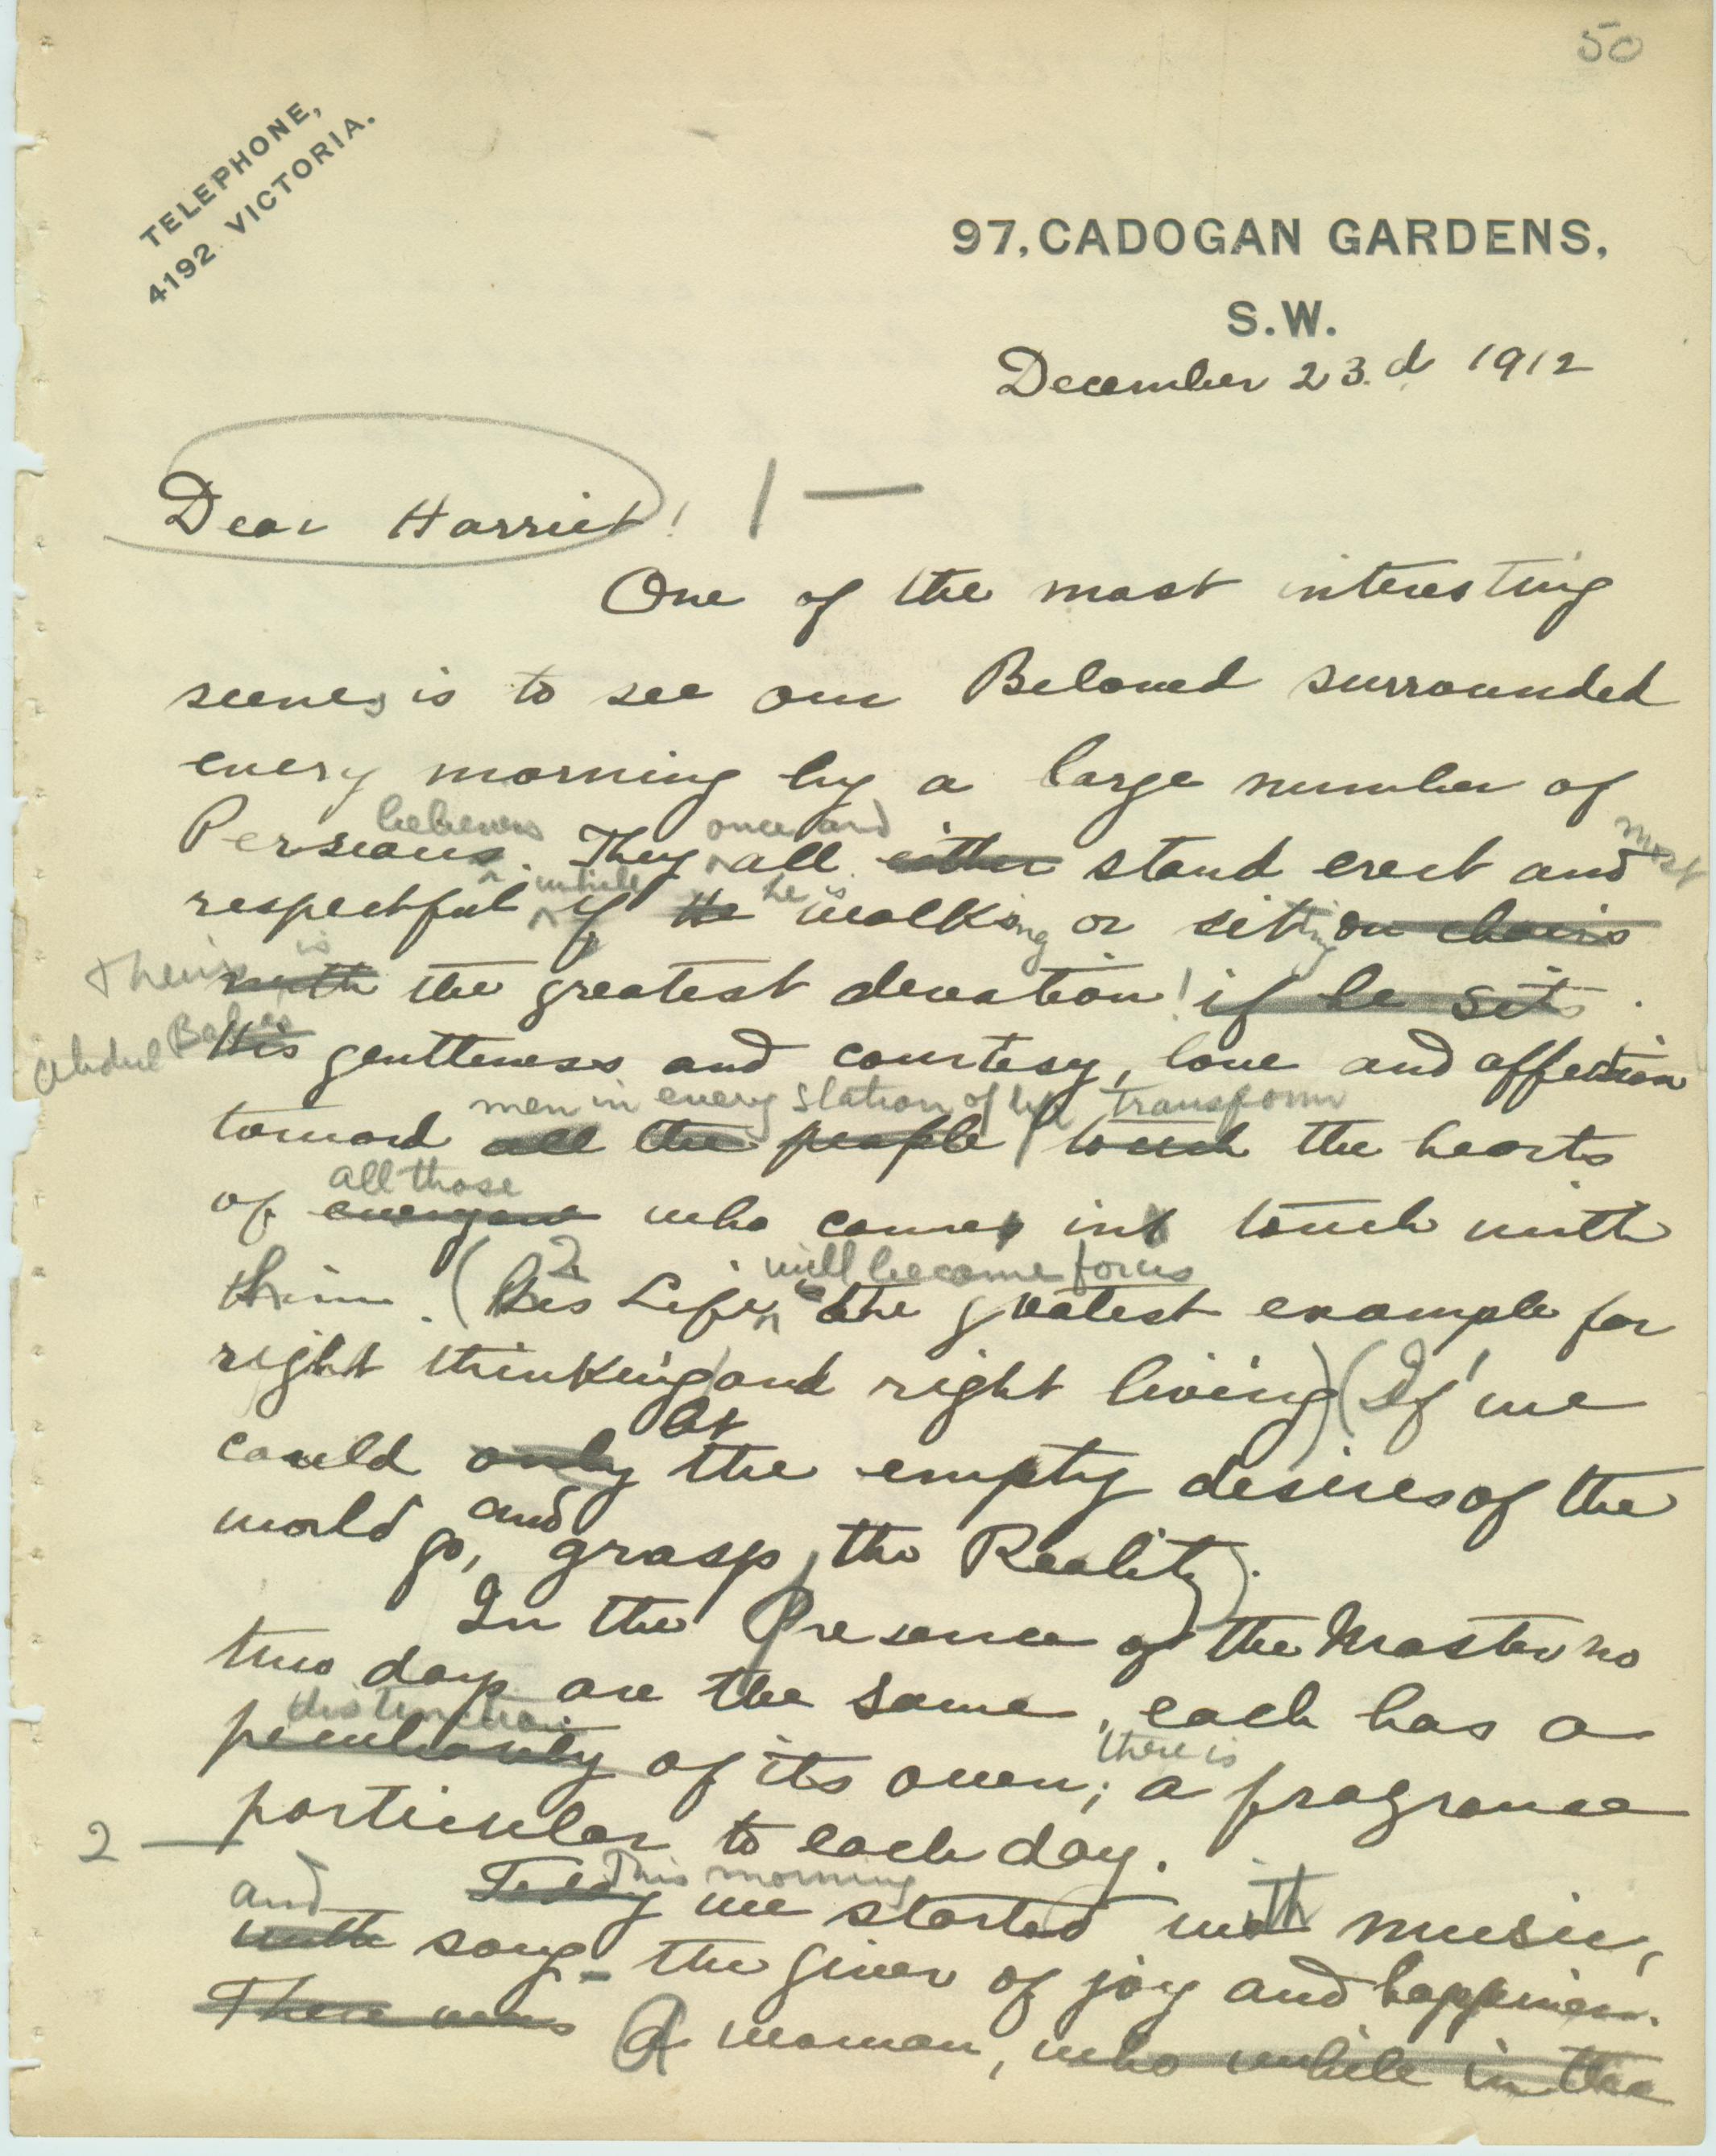 50
TELEPHONE,
4192 VICTORIA.
97, CADOGAN GARDENS,
S.W.
December 23.d 1912
Dear Harriet! 1 —
One of the most interesting
scenes is to see our Beloved surrounded
every morning by a large number of
believers once and most
Persians. They all either stand erect and
while he is
respectful if He walking or sitting on chairs
Their is
with the greatest devotion! if he sits.
Abdul Baha's
His gentleness and courtesy, love and affection
men in every station of life transform
toward all the people touch the hearts
all those
of everyone who comes into touch with
2 will become focus
him. (His Life the greatest example for
right thinking and right living) (If we
let
could only the empty desires of the
and
world go, grasp the Reality).
In the Presence of the Master no
two days are the same, each has a
distinction there is
peculiarity of its own; a fragrance
2 — particular to each day.
This morning
Today we started with music,
and
with song - the giver of joy and happiness.
There was A woman, who while in the